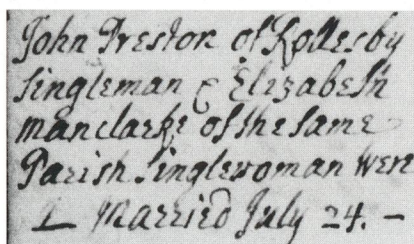 John Preston of Rollesby
singleman & Elizabeth
manclarke of the same
Parish singlewoman were
Married July 24. -